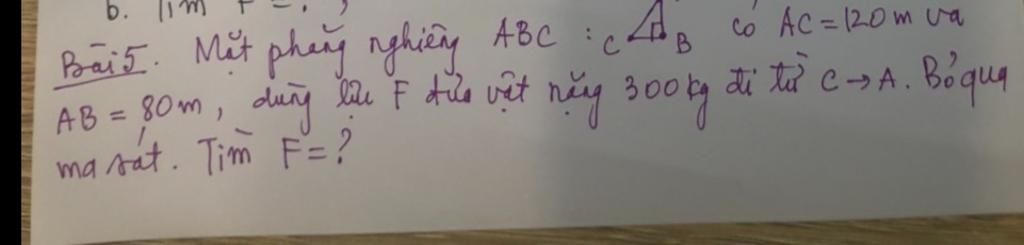 b. Tìm F = ?
Bài 5. Mặt phẳng nghiêng ABC : C B có AC = 120 m và
AB = 80 m, dùng lực F đưa vật nặng 300 kg đi từ C → A. Bỏ qua
ma sát. Tìm F = ?